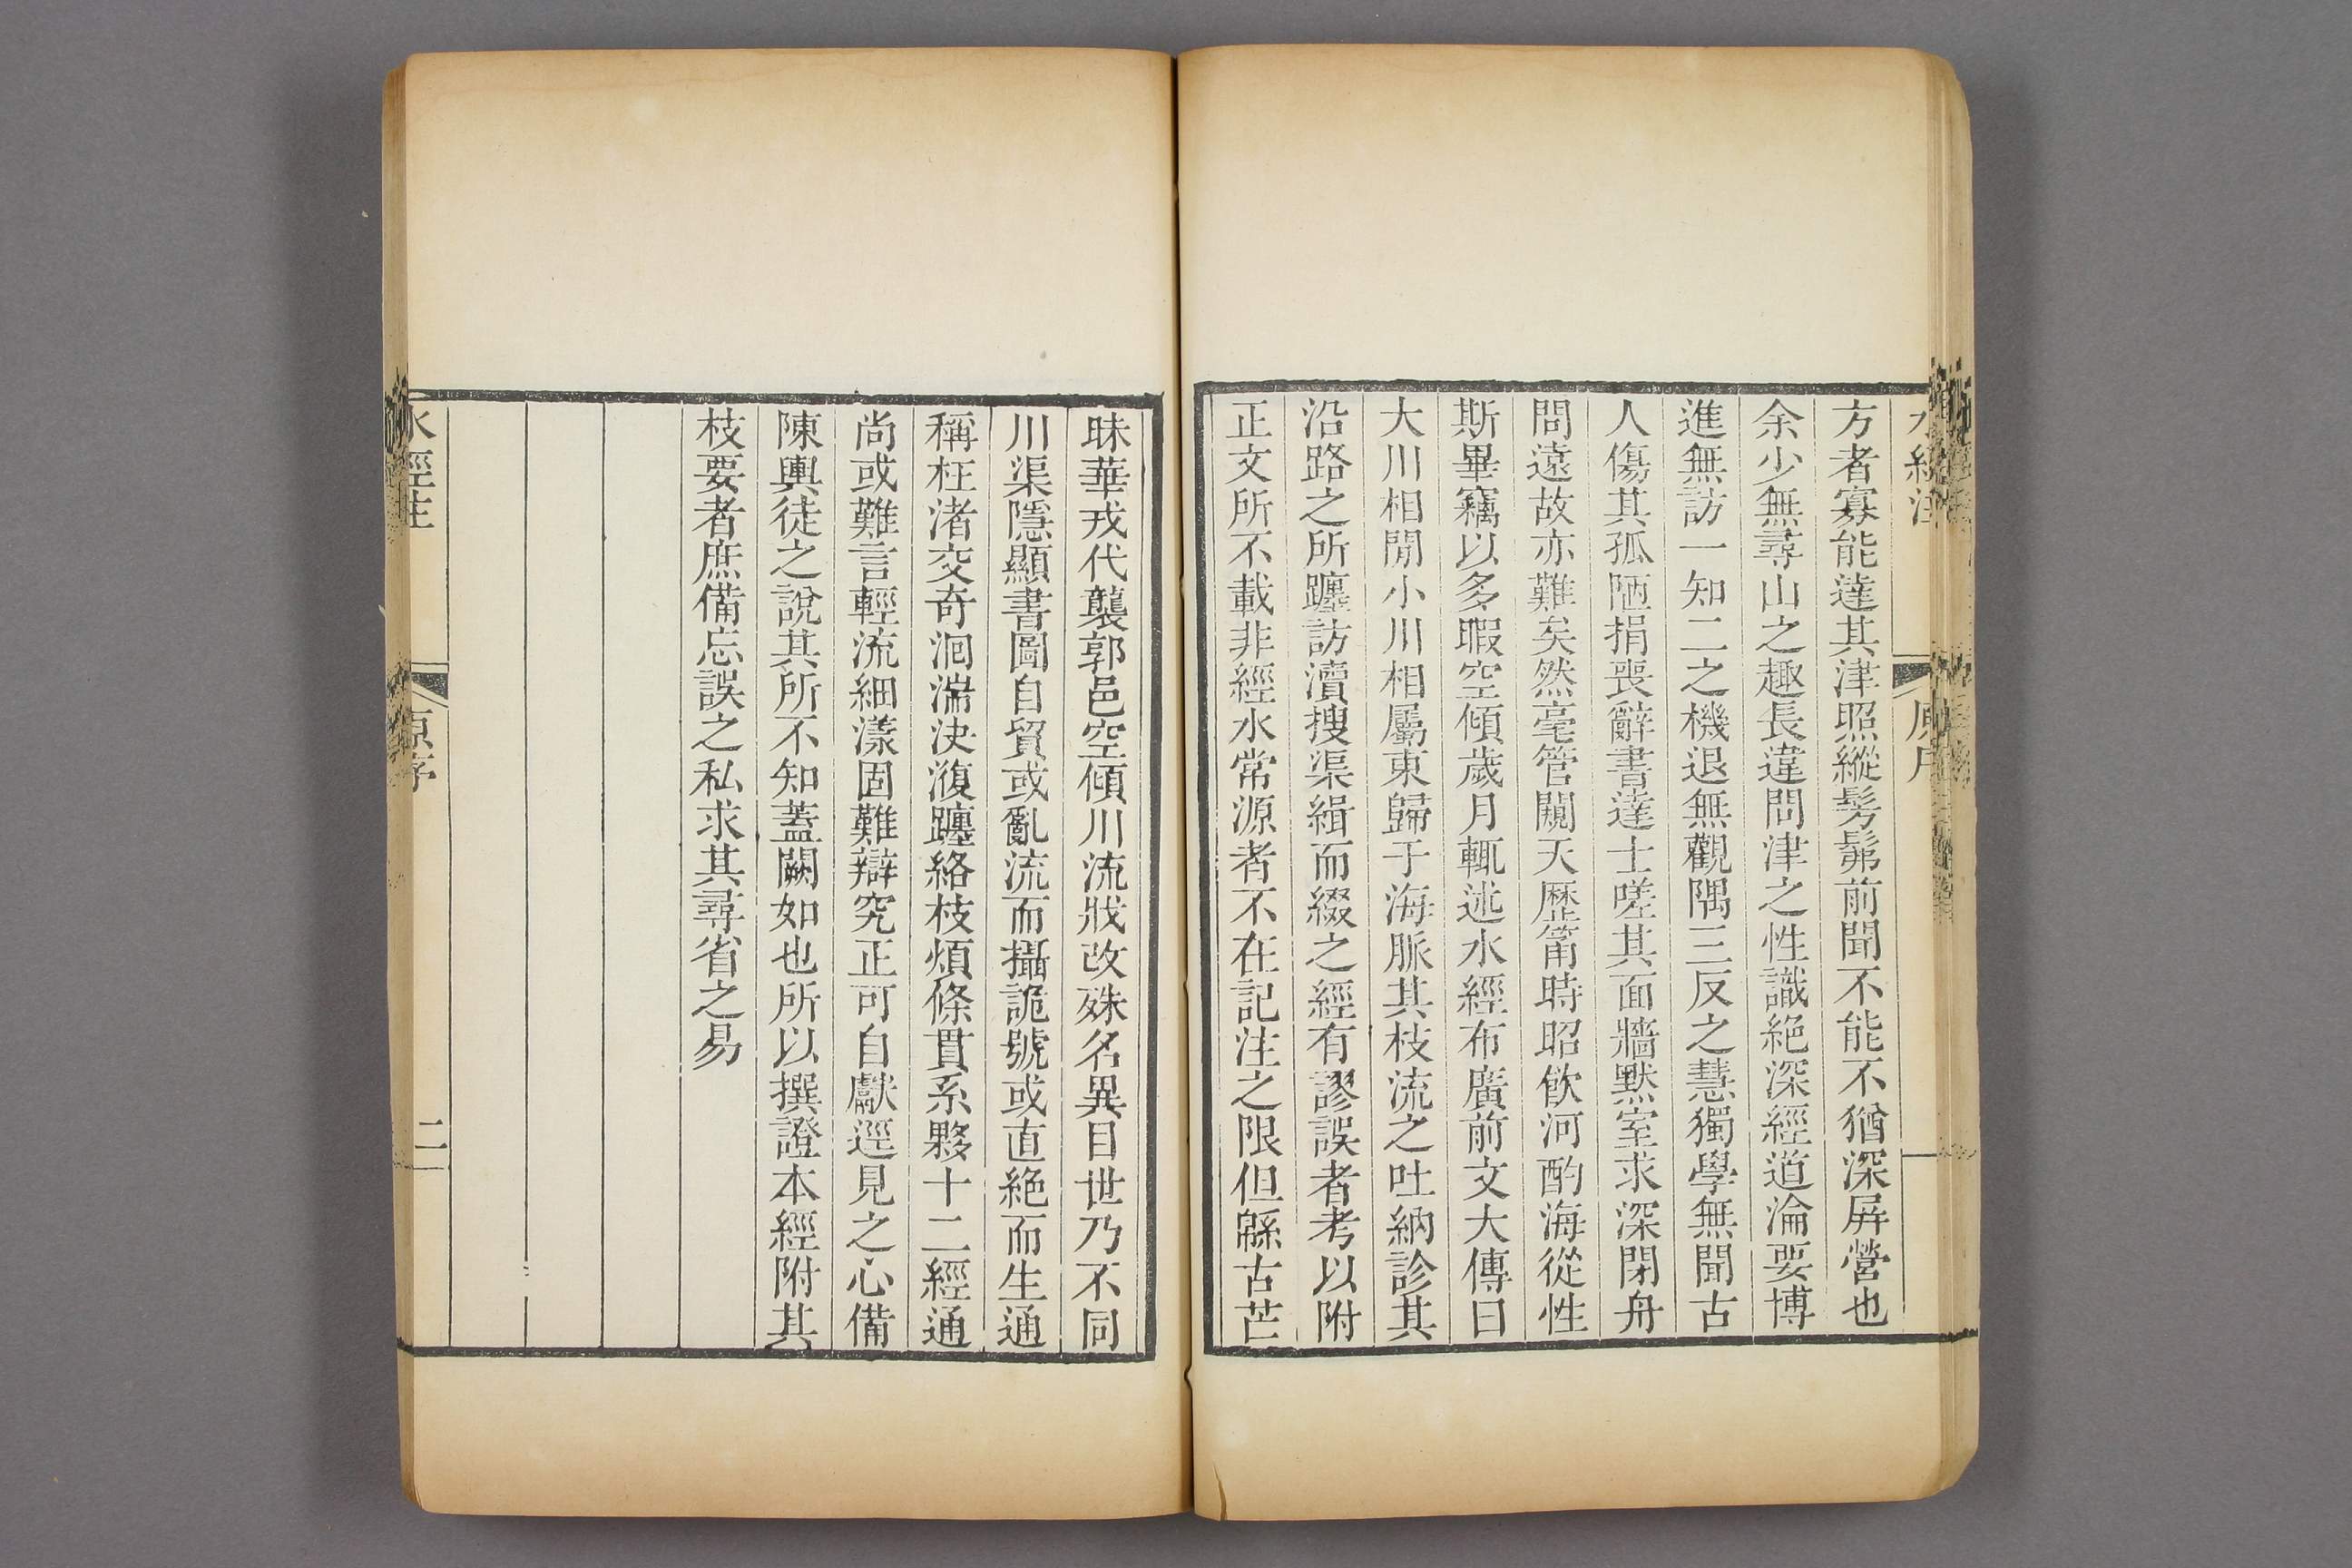 方者寡能達其津照縱髣髴前聞不能不猶深屏營也
余少無尋山之趣長違問津之性識絕深經道淪要博
進無訪一知二之機退無觀隅三反之慧獨學無聞古
人傷其孤陋捐喪辭書達士嗟其面牆默室求深閉舟
問遠故亦難矣然毫管闚天歷筩時昭飲河酌海從性
斯畢竊以多暇空傾歲月輒述水經布廣前文大傳曰
大川相閒小川相屬東歸于海脈其枝流之吐納診其
沿路之所躔訪瀆搜渠緝而綴之經有謬誤者考以附
正文所不載非經水常源者不在記注之限但緜古芒
昧華戎代襲郭邑空傾川流戕改殊名異目世乃不同
川渠隱顯書圖自貿或亂流而攝詭號或直絕而生通
稱枉渚交奇洄湍決澓躔絡枝煩條貫系夥十二經通
尚或難言輕流細漾固難辯究正可自獻逕見之心備
陳輿徒之說其所不知蓋闕如也所以撰證本經附其
枝要者庶備忘誤之私求其尋省之易
水經注
原序
二